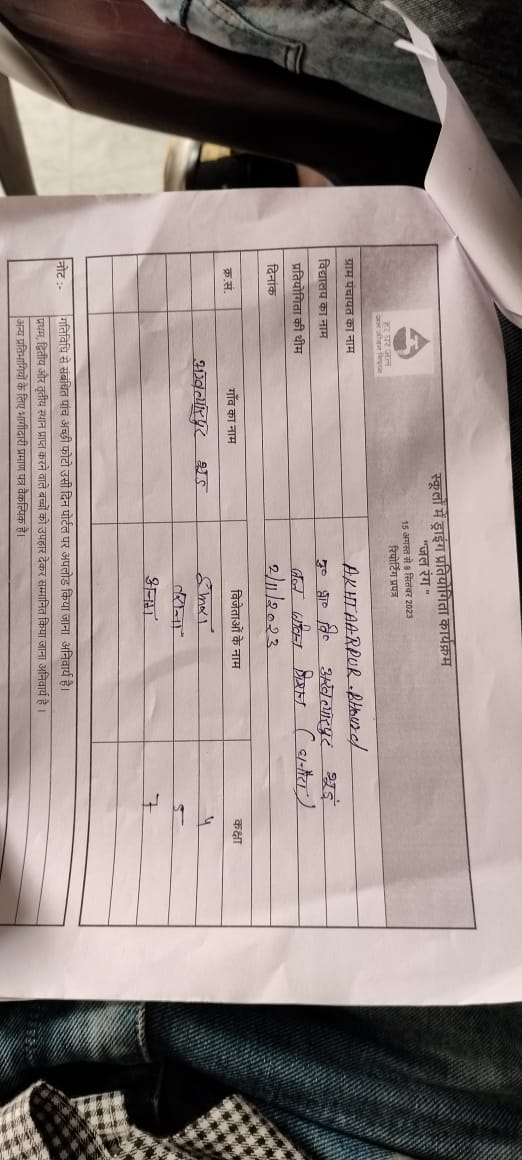 हर घर जल
जल जीवन मिशन
स्कूलों में ड्राइंग प्रतियोगिता कार्यक्रम
"जल रंग"
15 अगस्त से 8 सितंबर 2023
रिपोर्टिंग प्रपत्र
ग्राम पंचायत का नाम AKHTAARPUR
विद्यालय का नाम अख्त्यारपुर
प्रतियोगिता की थीम जल जीवन मिशन
दिनांक 2/11/2023
क्र.सं. गाँव का नाम विजेताओं के नाम कक्षा
अख्त्यारपुर
5
7
नोट :- गतिविधि से संबंधित पांच अच्छी फोटो उसी दिन पोर्टल पर अपलोड किया जाना अनिवार्य है।
प्रथम, द्वितीय और तृतीय स्थान प्राप्त करने वाले बच्चों को उपहार देकर सम्मानित किया जाना अनिवार्य है।
अन्य प्रतिभागियों के लिए भागीदारी प्रमाण पत्र वैकल्पिक है।